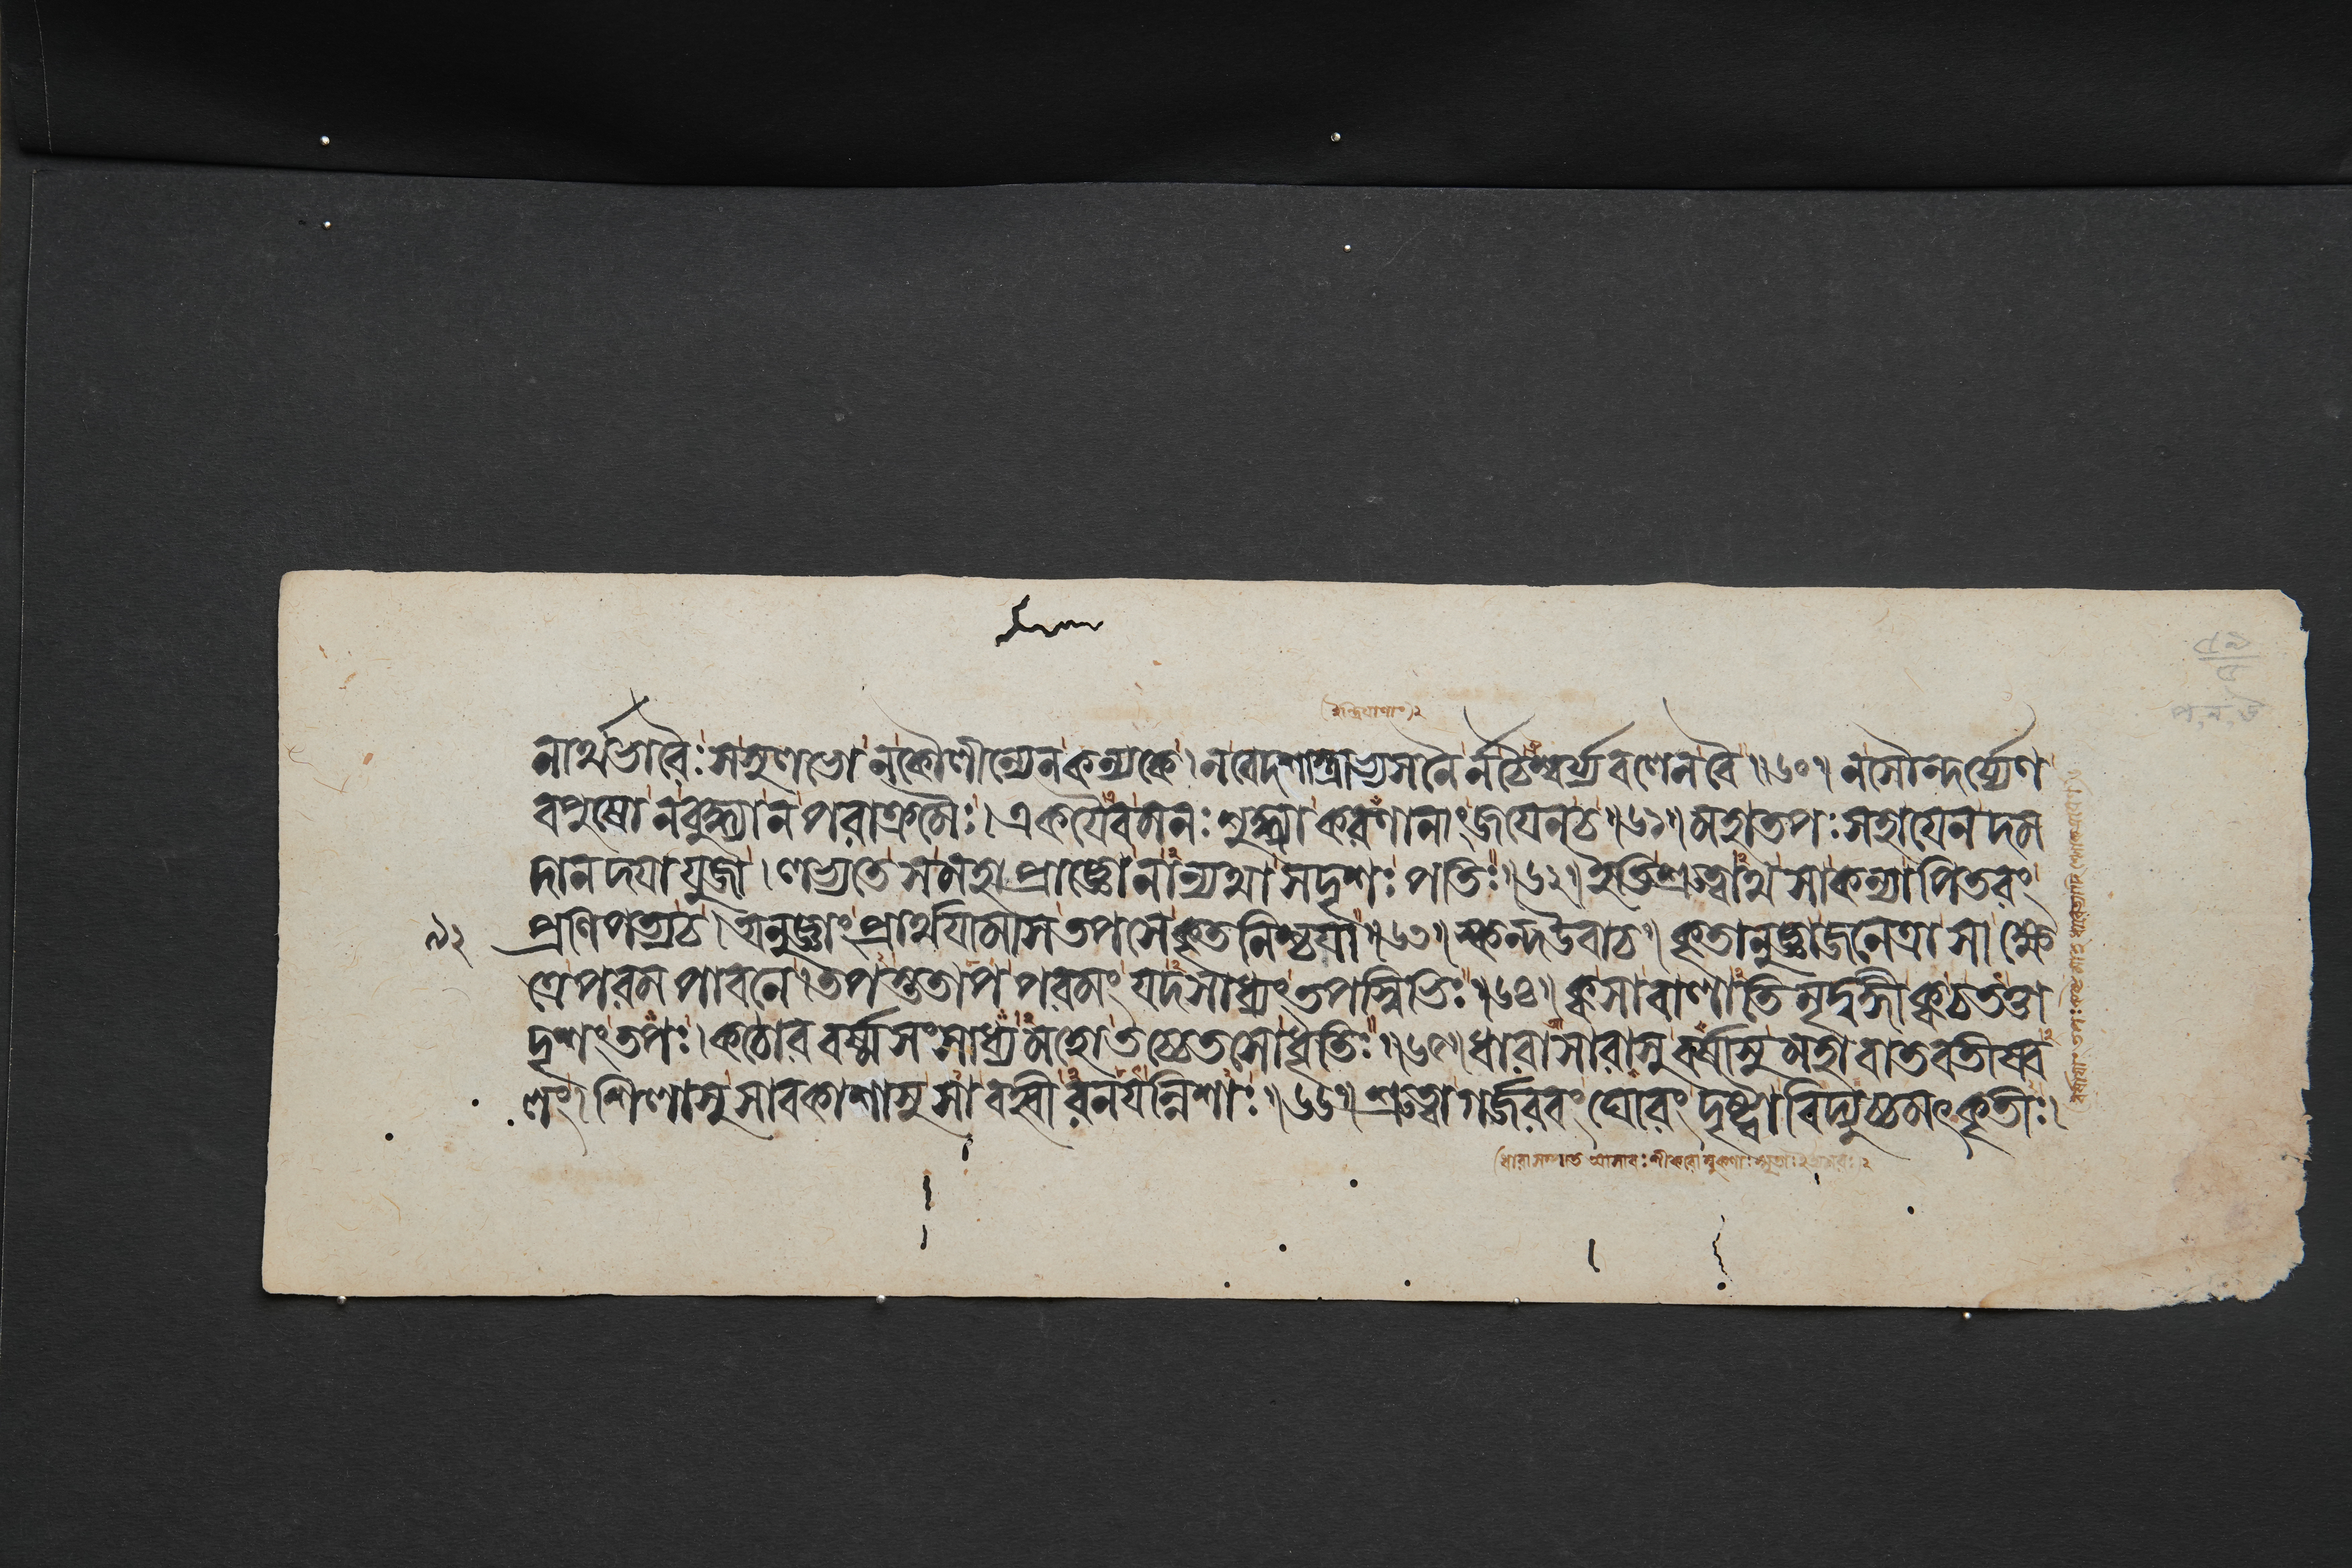 নার্থভারৈঃসসুলভোনকৌলীন্যেনকন্যকে।নবেদশাস্ত্রাভ্যসনৈর্নচৈশ্বর্য্যবলেনবৈ॥৬০॥নসৌন্দর্য্যেণ
(ইন্দ্রিয়াণাং)২
বপুষোনবুদ্ধ্যানপরাক্রমৈঃ।একয়ৈবমনঃশুদ্ধ্যাকরণানাংজয়েনচ॥৬১॥মহাতপঃসহায়েনদম
দানদয়াযুজা।লভ্যতেসমহাপ্রাজ্ঞোনান্যথাসদৃশঃপতিঃ॥৬২॥ইতিশ্রুত্বাথসাকন্যাপিতরং
৯২ প্রণিপত্যচ।অনুজ্ঞাংপ্রার্থয়ামাসতপসেকৃতনিশ্চয়া॥৬৩॥স্কন্দউবাচ॥কৃতানুজ্ঞাজনেত্রাসাক্ষে
ত্রেপরমপাবনে।তপস্ততাপপরমংযদসাধ্যংতপস্বিভিঃ॥৬৪॥ক্বসাবালাতিমৃদ্বঙ্গীক্বচতত্তা
দৃশংতপঃ।কঠোরবর্ষ্মসংসাধ্যমহোতচ্চেতসোধৃতিঃ॥৬৫॥ধারাসারাসুবর্ষাসুমহাবাতবতীষ্বল
লং।শিলাসুসাবকাশাসুসাবহ্বীরনয়ন্নিশাঃ॥৬৬॥শ্রুত্বাগর্জরবংঘোরংদৃষ্ট্বাবিদ্যুচ্চমৎকৃতীঃ।
(ধারাসম্পাত আসারঃ শীকরোম্বুকণাঃস্মৃতাঃ